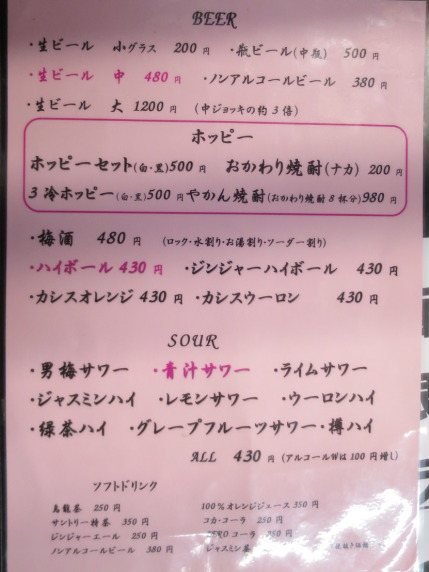 BEER
・生ビール 小グラス 200 円 ・瓶ビール(中瓶) 500 円
・生ビール 中 480 円 ・ノンアルコールビール 380 円
・生ビール 大 1200 円 (中ジョッキの約3倍)
ホッピー
ホッピーセット(白・黒)500 円 おかわり焼酎(ナカ) 200 円
3冷ホッピー(白・黒)500 円 やかん焼酎(おかわり焼酎8杯分)980 円
・梅酒 480 円 (ロック・水割り・お湯割り・ソーダー割り)
・ハイボール 430 円 ・ジンジャーハイボール 430 円
・カシスオレンジ 430 円 ・カシスウーロン 430 円
SOUR
・男梅サワー ・青汁サワー ・ライムサワー
・ジャスミンハイ ・レモンサワー ・ウーロンハイ
・緑茶ハイ ・グレープフルーツサワー・樽ハイ
ALL 430 円 (アルコールWは100円増し)
ソフトドリンク
烏龍茶 250 円 100%オレンジジュース 350 円
サントリー特茶 350 円 コカ・コーラ 250 円
ジンジャーエール 250 円 ZEROコーラ 350 円
ノンアルコールビール 380 円 ジャスミン茶